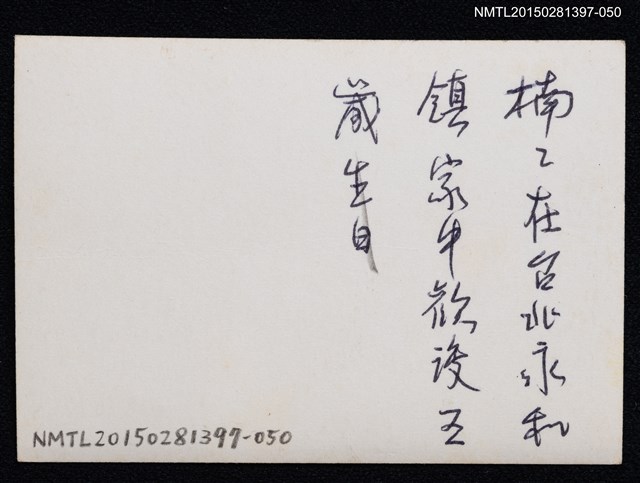 NMTL20150281397-050
楠々在台北永和
鎮家中歡度五
歲生日
NMTL20150281397-050